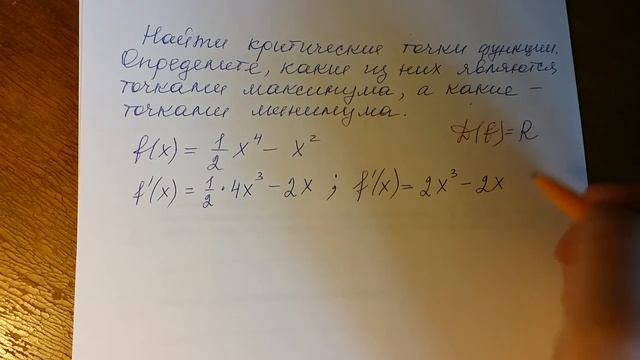 Найти критические точки функции.
Определите, какие из них являются
точками максимума, а какие –
точками минимума.
D(f)=R
f(x) = 1/2 x⁴ – x²
f'(x) = 1/2 · 4x³ – 2x ; f'(x) = 2x³ – 2x